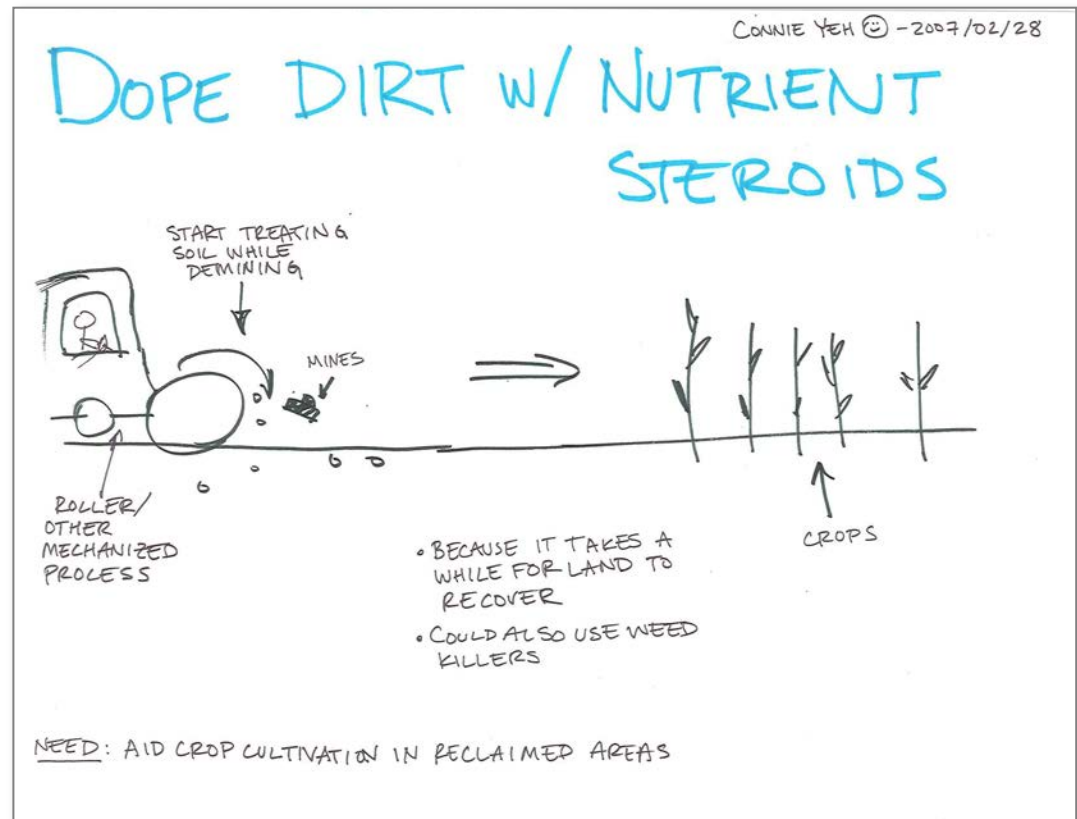 CONNIE YEH ☺ - 2007/02/28
DOPE DIRT W/ NUTRIENT
STEROIDS
START TREATING
SOIL WHILE
DEMINING
MINES
ROLLER/
OTHER
MECHANIZED
PROCESS
• BECAUSE IT TAKES A
WHILE FOR LAND TO
RECOVER
• COULD ALSO USE WEED
KILLERS
CROPS
NEED: AID CROP CULTIVATION IN RECLAIMED AREAS